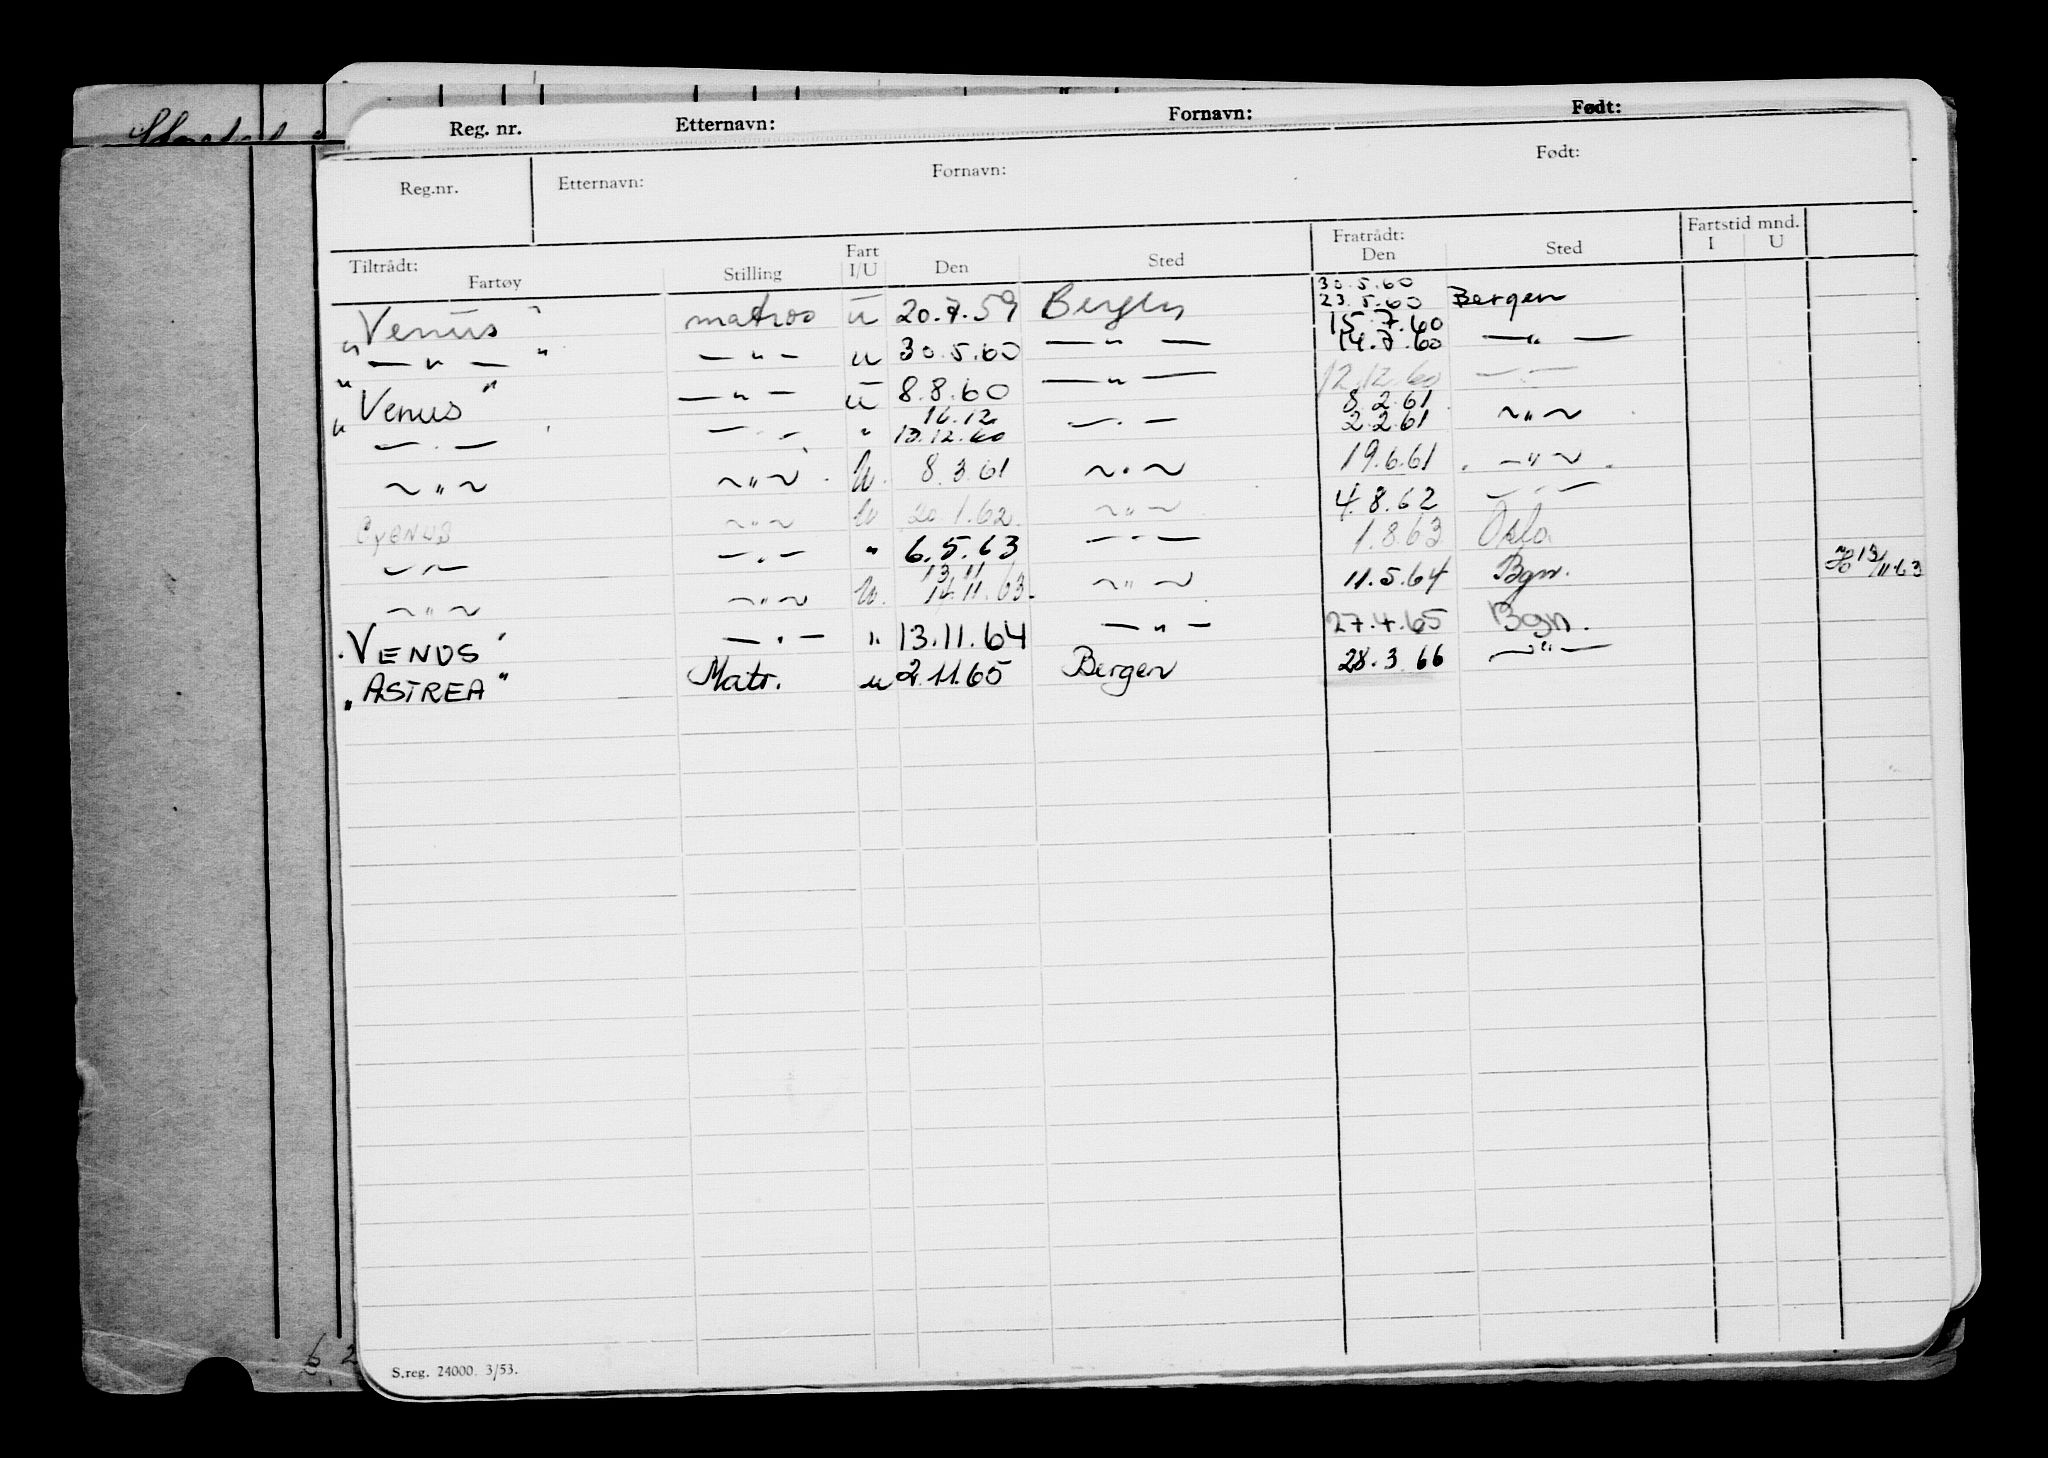 Reg. nr. Etternavn: Fornavn: Født:
Reg.nr. Etternavn: Fornavn: Født:
Tiltrådt: Fratrådt: Fartstid mnd.
Fartøy Stilling Fart I/U Den Sted Den Sted I U
30.5.60
"Venus" matros U 20.7.59 Bergen 23.5.60 Bergen
15.7.60
" — " — " — " — u 30.5.60 — " — 14.7.60 — " —
"Venus" — " — U 8.8.60 — " — 12.12.60 — " —
16.12 8.2.61
" — " — — " — " 13.12.60 — " — 2.2.61 ~ " ~
~ " ~ ~ " ~ U. 8.3.61 ~ " ~ 19.6.61 — " ~
Cygnus ~ " ~ U 20.1.62. ~ " ~ 4.8.62 — " —
— " — — " — " 6.5.63 — " — 1.8.63 Oslo
13.11
~ " ~ ~ " ~ U. 14.11.63. ~ " ~ 11.5.64 Bgn. 13/11 63
"VENUS" — " — " 13.11.64 — " — 27.4.65 Bgn.
"ASTREA" Matr. u 2.11.65 Bergen 28.3.66 — " —
S.reg. 24000. 3/53.